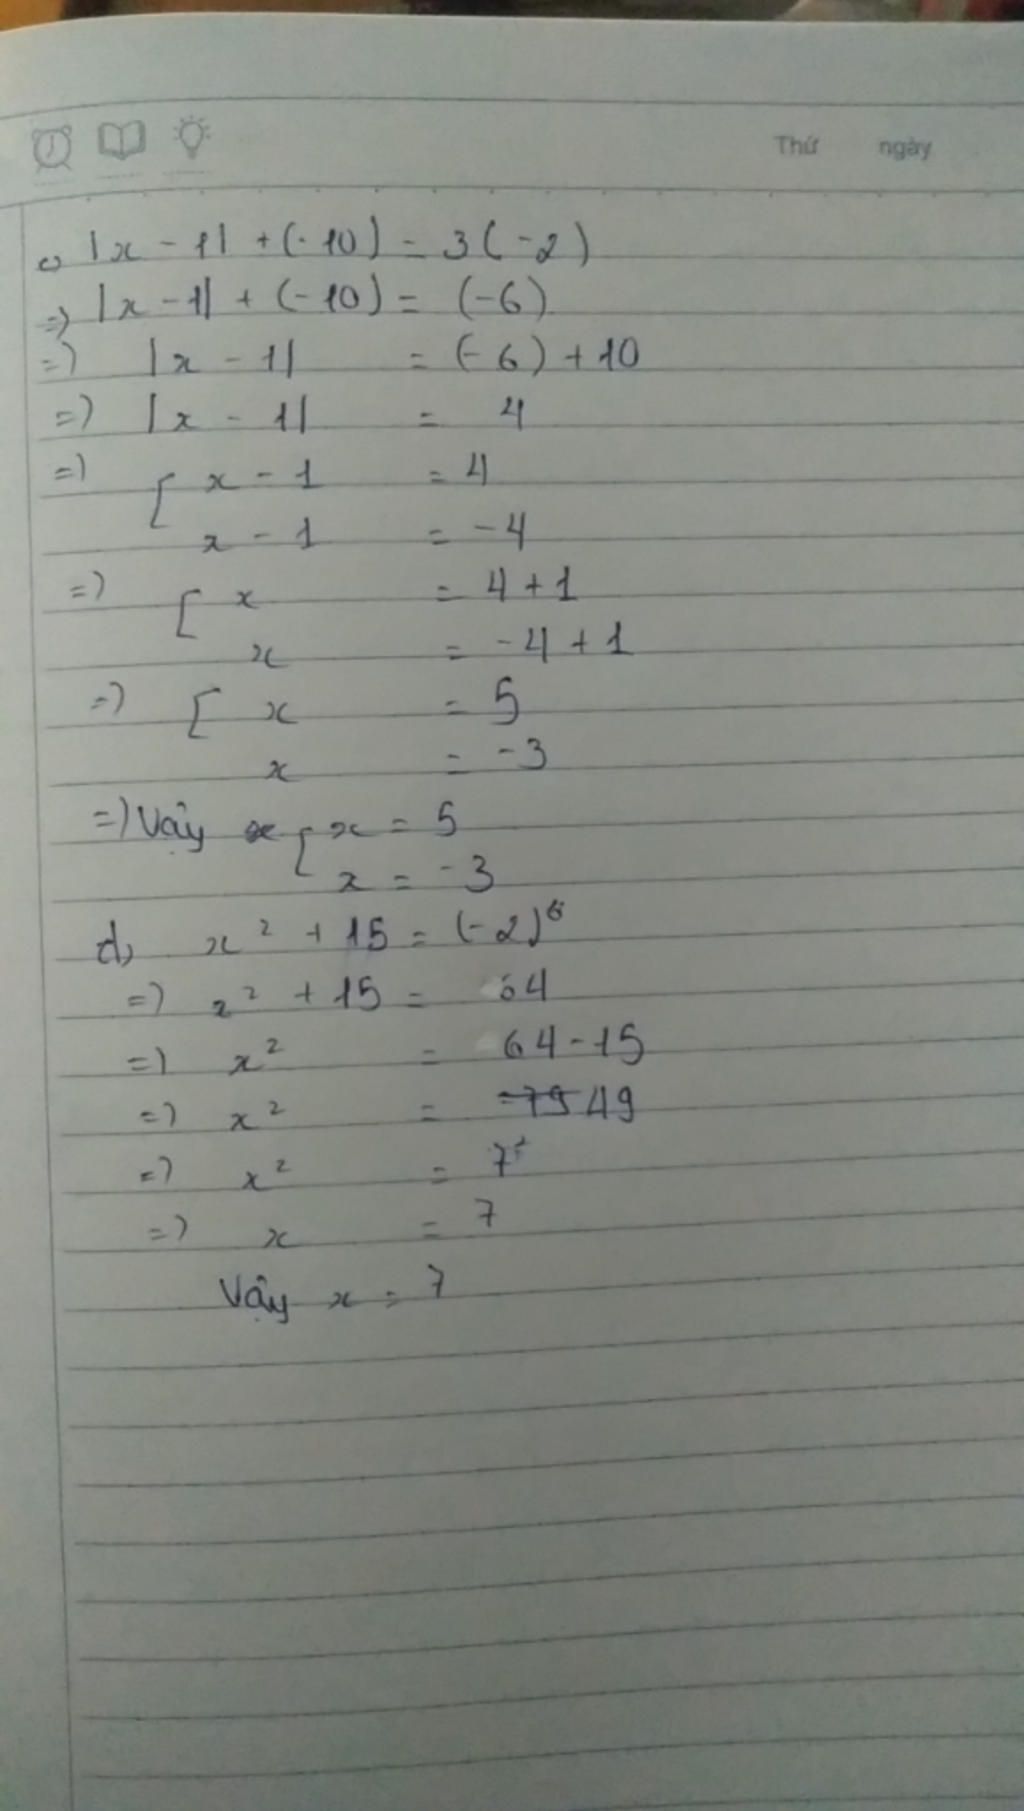 Thứ ngày
c, |x - 1| + (-10) = 3(-2)
=) |x - 1| + (-10) = (-6)
=) |x - 1| = (-6) + 10
=) |x - 1| = 4
=) [ x - 1 = 4
x - 1 = -4
=) [ x = 4 + 1
x = -4 + 1
=) [ x = 5
x = -3
=) Vậy [ x = 5
x = -3
d, x² + 15 = (-2)⁶
=) x² + 15 = 64
=) x² = 64 - 15
=) x² = 49
=) x² = 7²
=) x = 7
Vậy x = 7